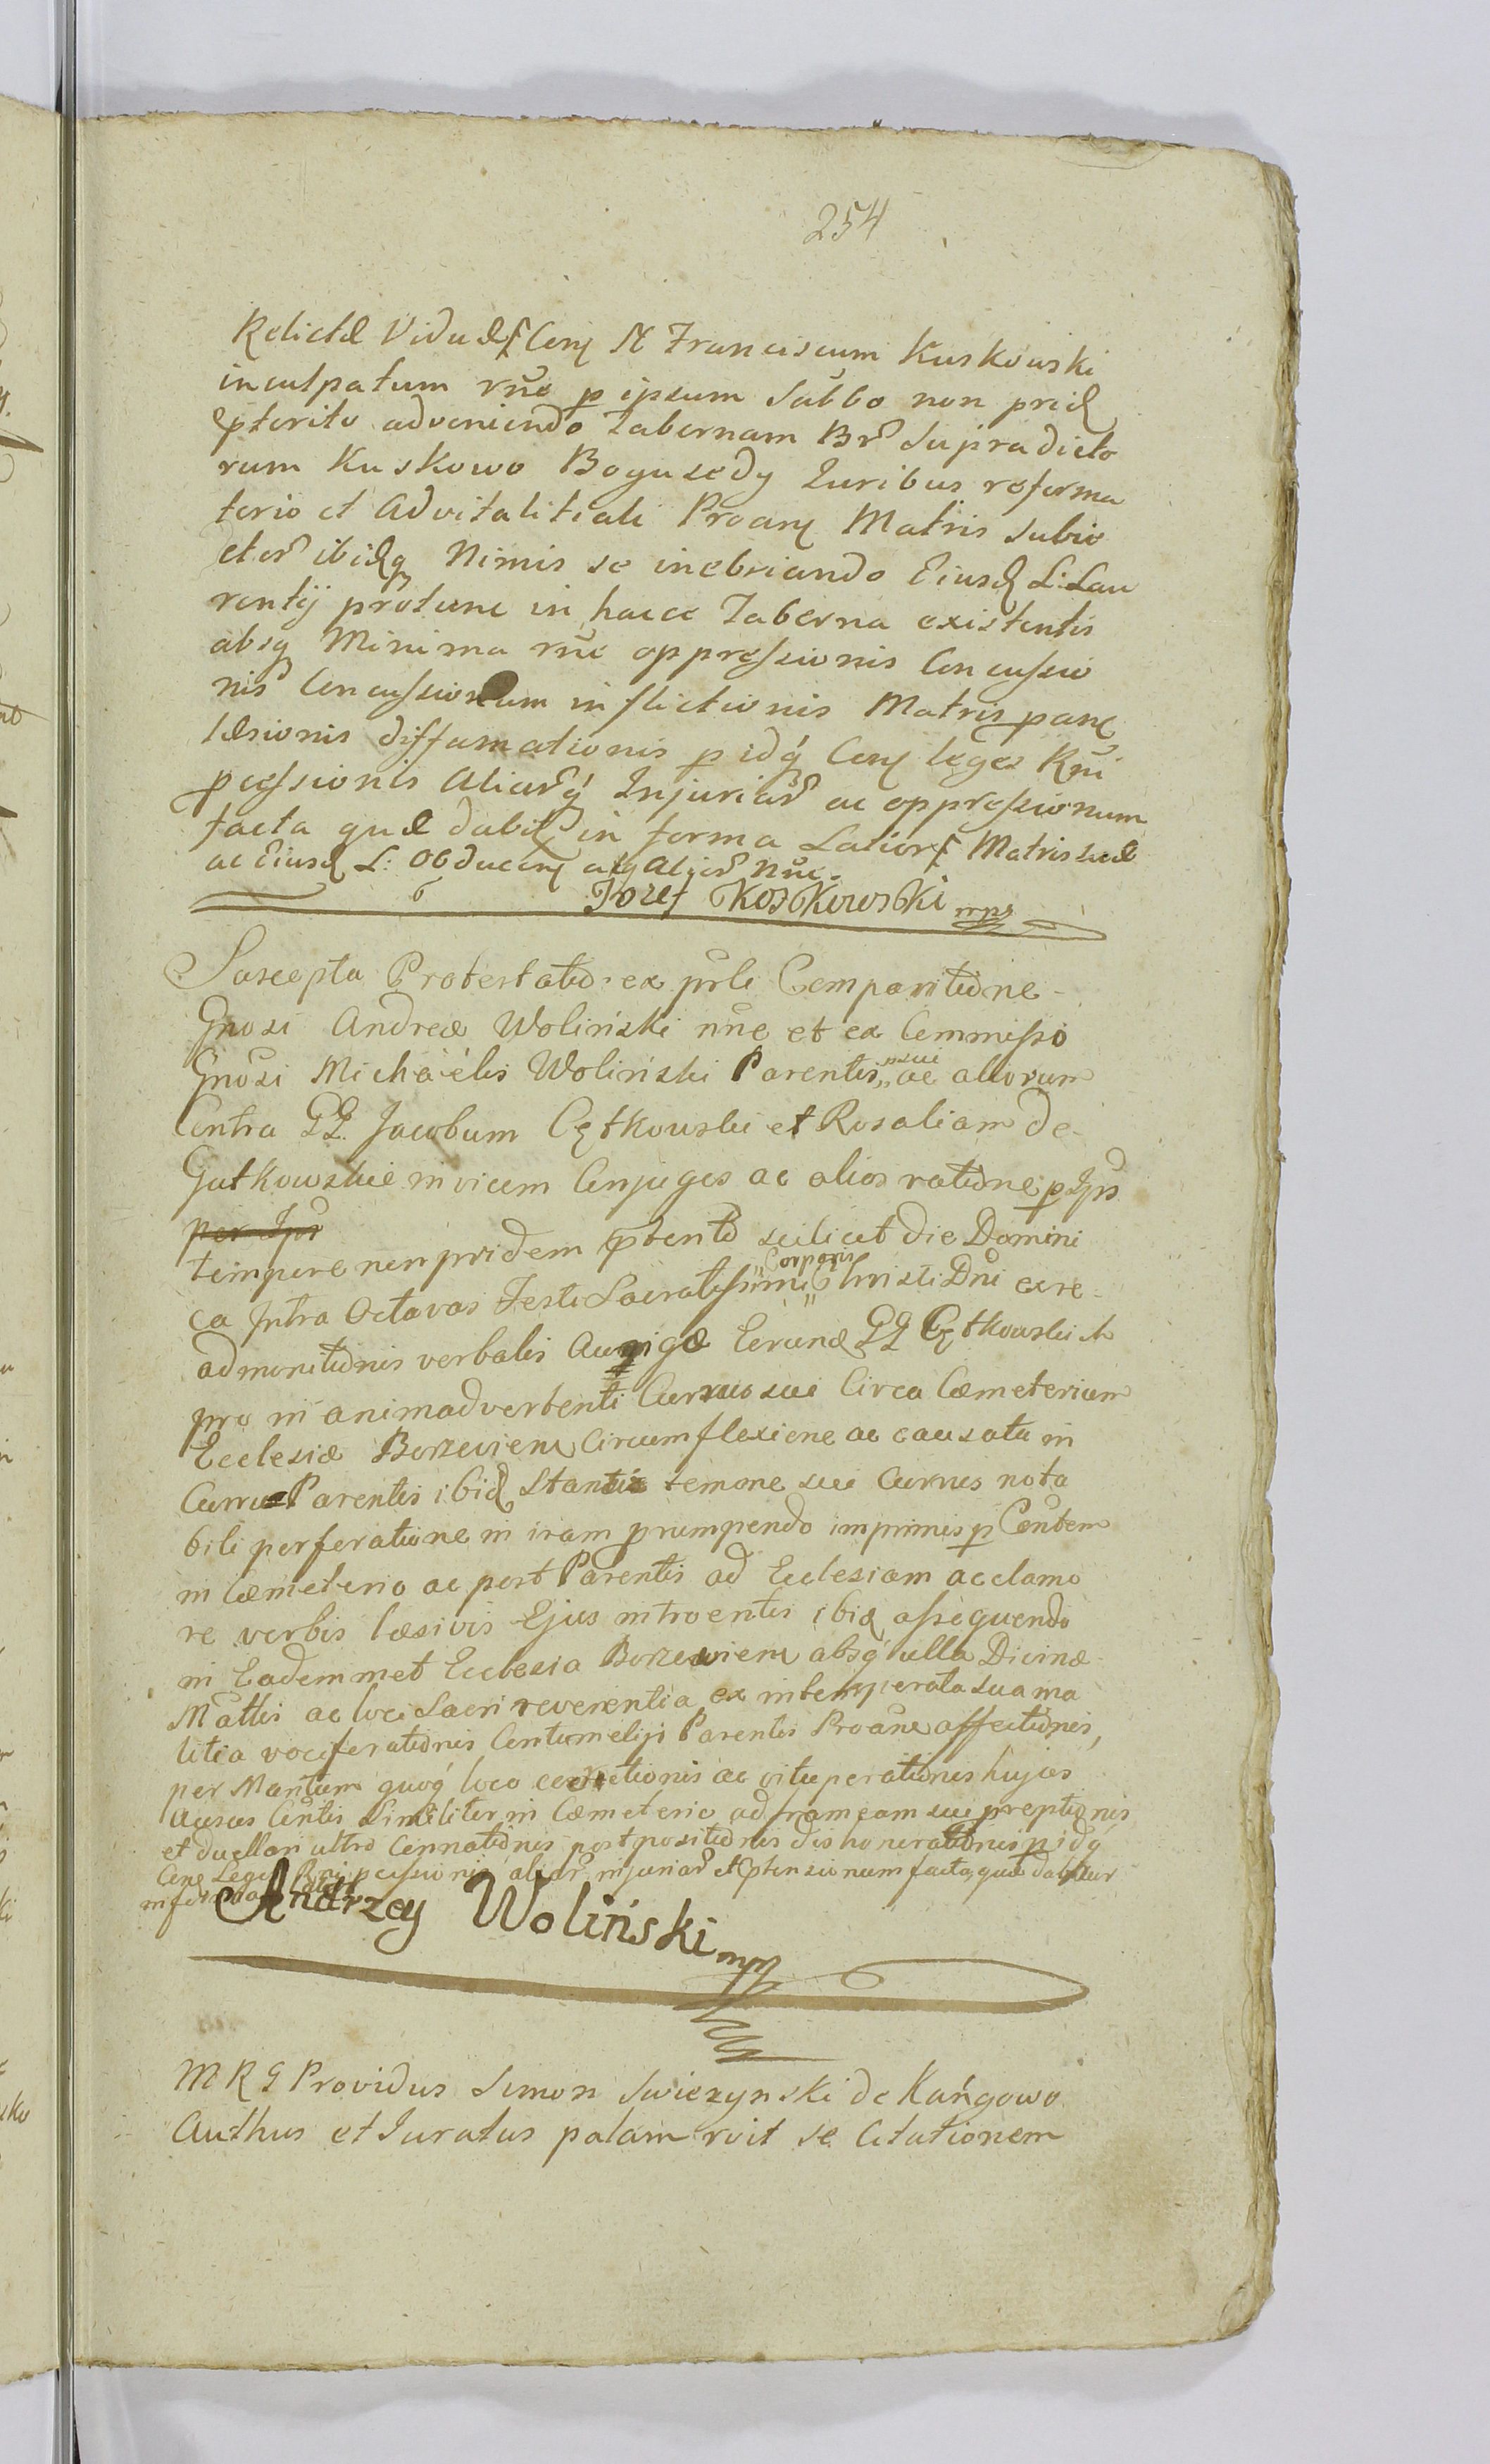 254
Relictæ Viduæ Conę N Franciscum Kuskowski
inculpatum rñe p ipsum Sabbo non prid
pterito adveniendo Tabernam Br Supradicto
rum Kuskowo Bogusedy Iuribus reforma
torio et Advitalitiali Proanę Matris subie
ctor ibidq Nimis se inebriando Eiusd L: Lau
rentij protunc in hacce Taberna existentis
absq Minima rñe oppressionis Concussio
nis Concussionum inflictionis Matris panę
læsionis diffamationis p idq Conę leges Rñi
pcessionis Aliarq Injuriar ac oppressionum
facta quæ dabit in forma Latiori Matris suæ
ac Eiusd L: Obducenę atq Alior Nñe.
Jozef Koskowski mp
Suscepta Protestatio ex prsli Comparitione
Gnosi Andreæ Woliński nñe et ex Commisso
Gnosi Michaëlis Woliński Parentis sui ac aliorum
Contra GG. Jacobum Cętkowski et Rosaliam de
Gutkowskie invicem Conjuges ac alios ratione p Ips
per Ips
tempore non pridem pterito scilicet die Domini
ca Intra Octavas Festi Sacratissimi Corporis Christi Dñi ex re
admonitionis verbalis Aurigæ Eorund GG Cętkowski
pro in animadvertenti Currus sui Circa Cæmeterium
Ecclesiæ Borzeviene Circumflexione ac causata in
Curru Parentis ibid Stantis temone sui Currus nota
bili perforatione in iram prumpendo imprimis p Contem
in Cæmeterio ac post Parentis ad Ecclesiam acclamo
re verbis læsivis Ejus introentis ibid assequendo
in Eademmet Ecclesia Borzeviene absq ulla Divinæ
Mattis ac loci Sacri reverentia ex intemperata sua ma
litia vociferationis Contumelijs Parentis Proane affectionis,
per Maritum quoq loco coercitionis ac vituperationis hujus
Ausus Contis Similiter in Cæmeterio ad frameam sui preptionis
et duellari ultro Connationis postpositionis dishonorationis p idq
Cone Leges Rni pcessionis aliar injuriar et ptensionum facta, quæ dabitur
in forma
Andrzey Woliński mp
M R G Providus Simon Swiezynski de Kańgowo
Authus et Juratus palam rvit se Citationem